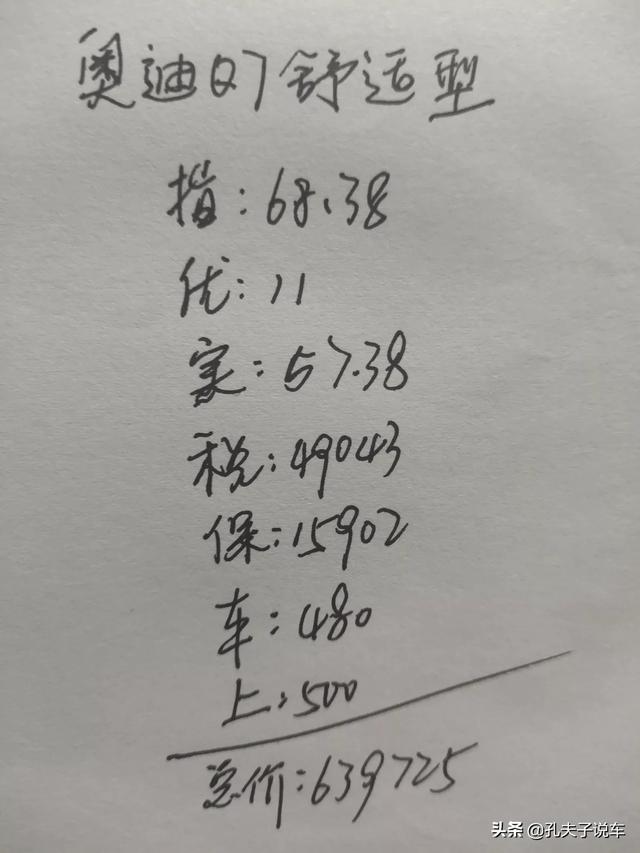 奥迪Q7舒适型
指:68.38
优:11
实:57.38
税:49043
保:15902
车:480
上:500
总价:639725
头条 @孔夫子说车